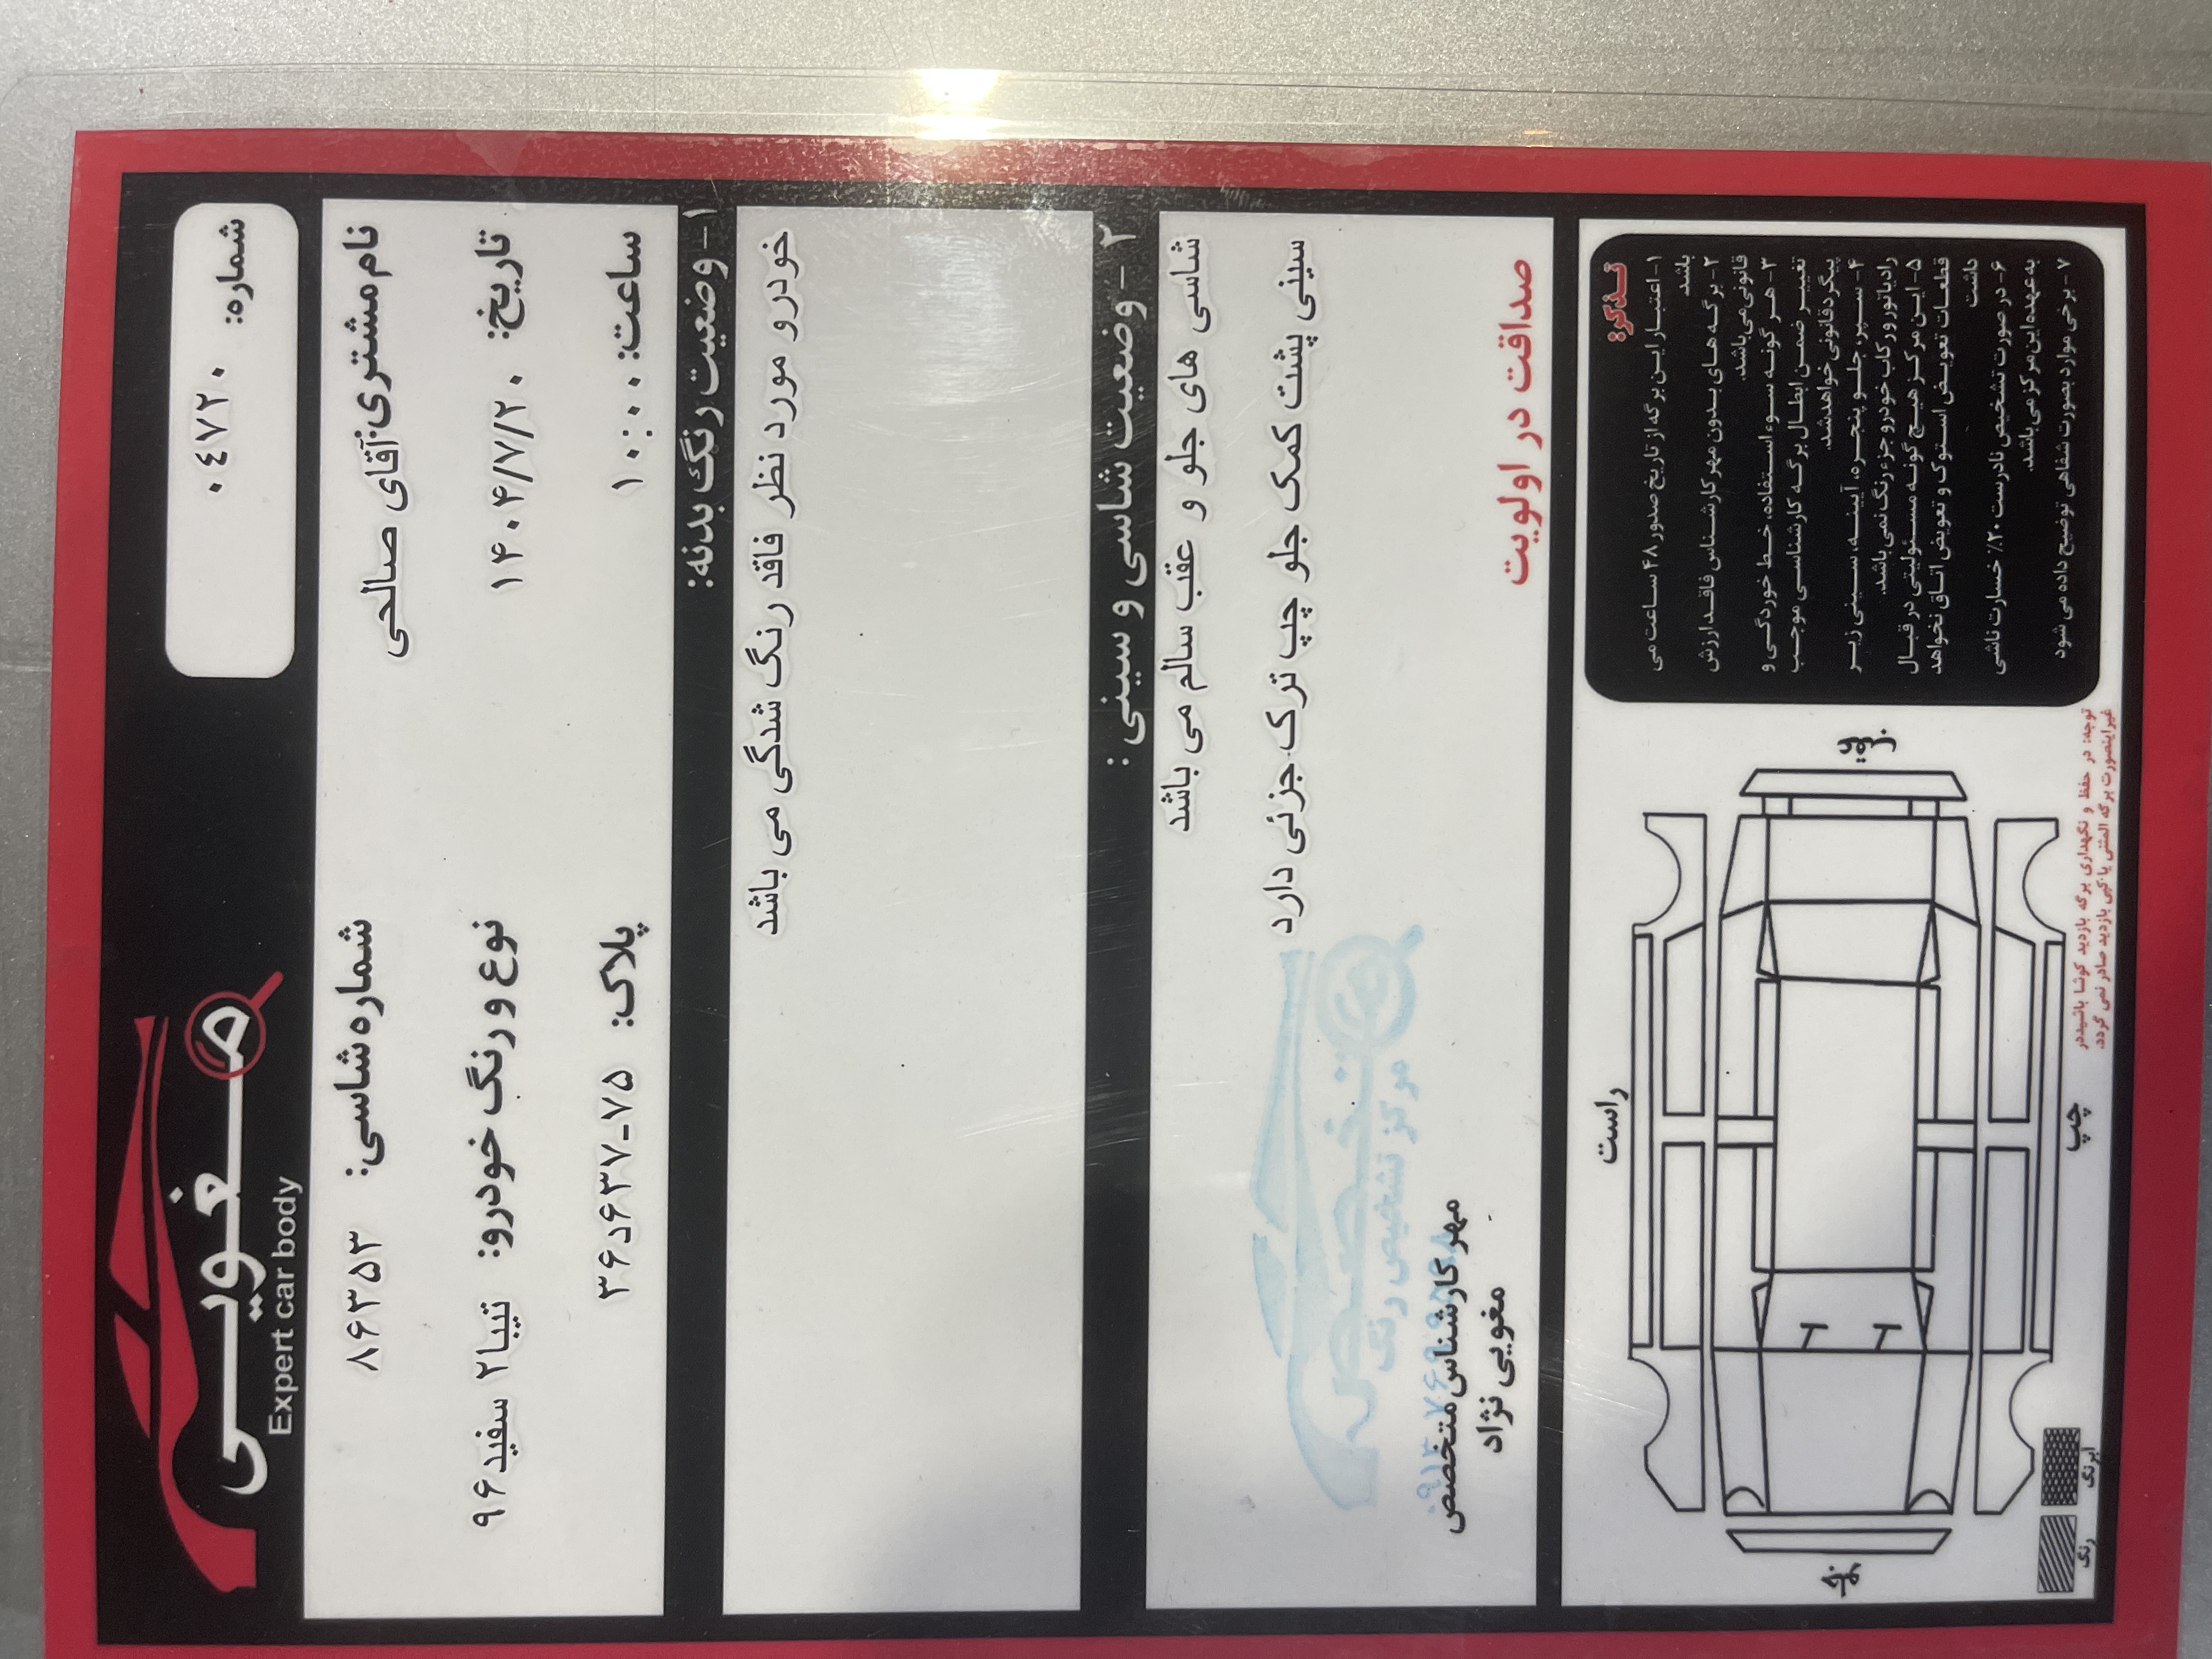 مغویی
Expert car body
شماره: ۰٤۷۲۰
نام مشتری: آقای صالحی
شماره شاسی: ۸۶۳۵۳
تاریخ: ۱۴۰۴/۷/۲۰
نوع و رنگ خودرو: تیبا۲ سفید۹۶
ساعت: ۱۰:۰۰
پلاک: ۳۶د۶۳۷-۷۵
۱- وضعیت رنگ بدنه:
خودرو مورد نظر فاقد رنگ شدگی می باشد
۲ - وضعیت شاسی و سینی :
شاسی های جلو و عقب سالم می باشد
سینی پشت کمک جلو چپ ترک جزئی دارد
صداقت در اولویت
تخصصی
مرکز تشخیص رنگ
مهر کارشناس متخصص
مغویی نژاد
تذکر:
۱- اعتبار این برگه از تاریخ صدور ۴۸ ساعت می
باشد
۲- برگه های بدون مهر کارشناس فاقد ارزش
قانونی می باشد.
۳- هر گونه سوء استفاده، خط خوردگی و
تغییر ضمن ابطال برگه کارشناسی موجب
پیگرد قانونی خواهد شد.
۴- سپر، جلو پنجره، آیینه، سینی زیر
رادیاتور و رکاب خودرو جزء رنگ نمی باشد.
۵- این مرکز هیچ گونه مسئولیتی در قبال
قطعات تعویض استوک و تعویض اتاق نخواهد
داشت
۶- در صورت تشخیص نادرست ۲۰٪ خسارت ناشی
به عهده این مرکز می باشد.
۷- برخی موارد بصورت شفاهی توضیح داده می شود
راست
چپ
عقب
جلو
رنگ
آبرنگ
توجه: در حفظ و نگهداری برگه بازدید کوشا باشید در
غیر اینصورت برگه المثنی یا کپی بازدید صادر نمی گردد.